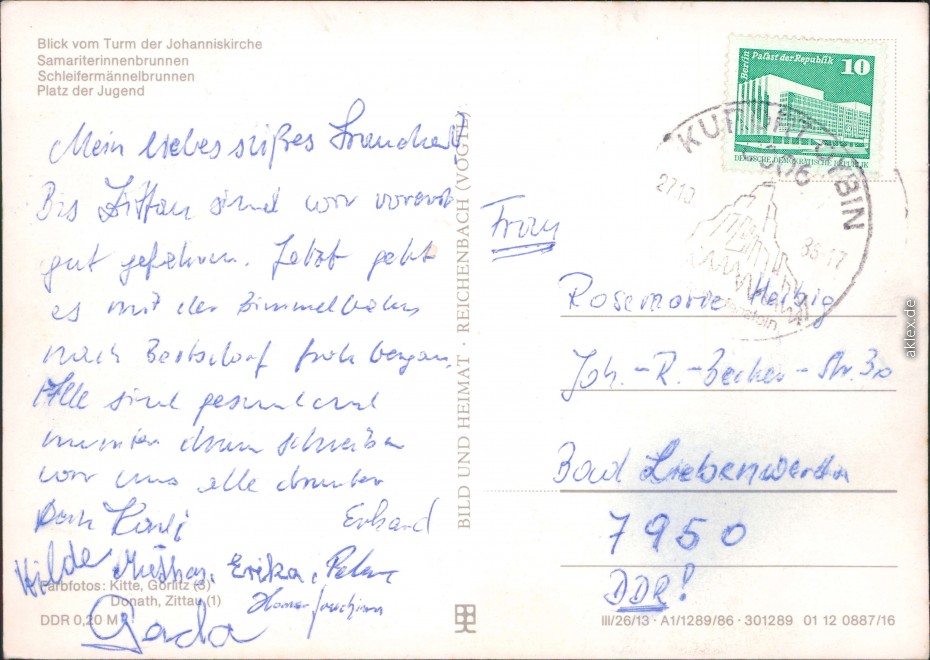 Blick vom Turm der Johanniskirche
Samariterinnenbrunnen
Schleifermännelbrunnen
Platz der Jugend
Mein liebes süßes
Bis Zittau sind wir vorerst
gut gefahren. Jetzt geht
es mit der Bimmelbahn
nach Bertsdorf froh bergan.
Alle sind gesund und
munter drum schreiben
wir uns alle drunter
Dein Erhard
Hilde Erika, Peter
Hans Joachim
Gerda
Farbfotos: Kitte, Görlitz (3)
Donath, Zittau (1)
DDR 0,20 M
BILD UND HEIMAT · REICHENBACH (VOGTL)
Berlin Palast der Republik 10
DEUTSCHE DEMOKRATISCHE REPUBLIK
KURORT OYBIN
8806
27.10 86-17
Frau
Rosemarie Helbig
Joh.-R.-Becher-Str. 30
Bad Liebenwerda
7950
DDR!
III/26/13 · A1/1289/86 · 301289 01 12 0887/16
aklex.de